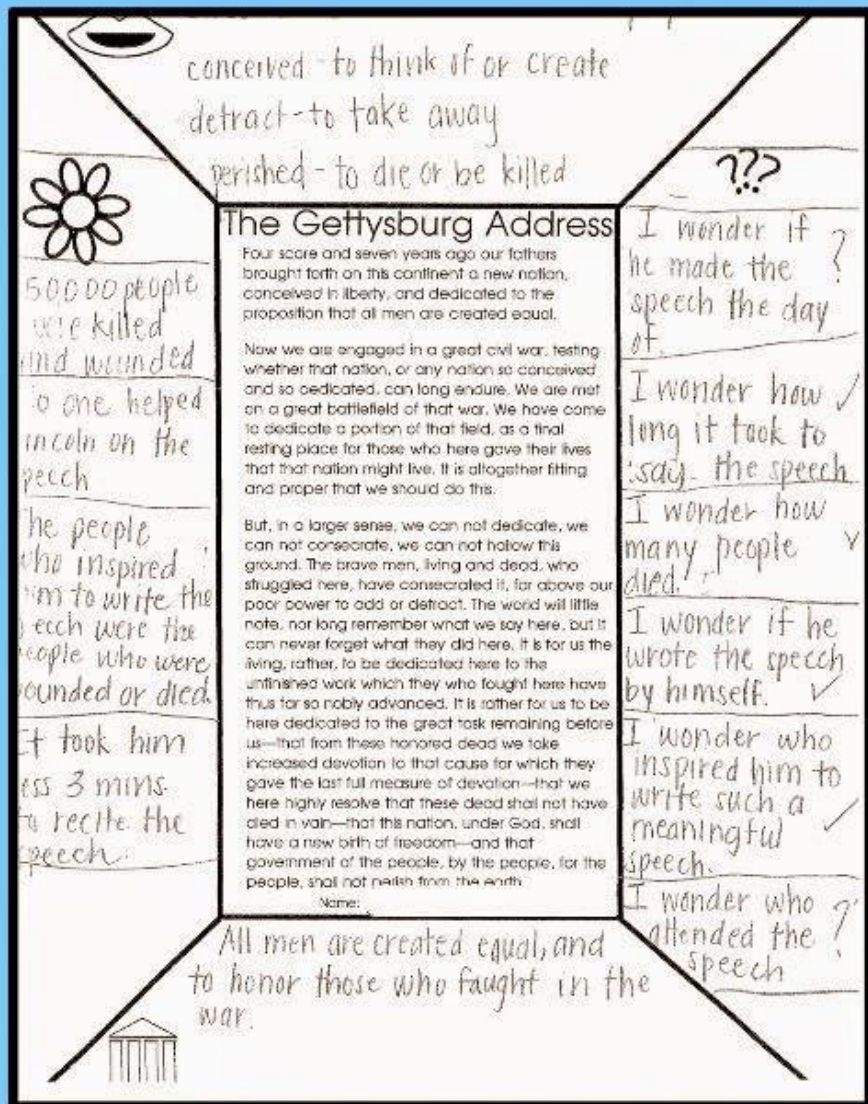 conceived - to think of or create
detract - to take away
perished - to die or be killed
50000 people
were killed
and wounded
o one helped
incoln on the
peech
he people
who inspired
him to write the
eech were the
eople who were
ounded or died.
It took him
ess 3 mins
to recite the
speech.
The Gettysburg Address
Four score and seven years ago our fathers
brought forth on this continent a new nation,
conceived in liberty, and dedicated to the
proposition that all men are created equal.
Now we are engaged in a great civil war, testing
whether that nation, or any nation so conceived
and so dedicated, can long endure. We are met
on a great battlefield of that war. We have come
to dedicate a portion of that field, as a final
resting place for those who here gave their lives
that that nation might live. It is altogether fitting
and proper that we should do this.
But, in a larger sense, we can not dedicate, we
can not consecrate, we can not hallow this
ground. The brave men, living and dead, who
struggled here, have consecrated it, far above our
poor power to add or detract. The world will little
note, nor long remember what we say here, but it
can never forget what they did here. It is for us the
living, rather, to be dedicated here to the
unfinished work which they who fought here have
thus far so nobly advanced. It is rather for us to be
here dedicated to the great task remaining before
us—that from these honored dead we take
increased devotion to that cause for which they
gave the last full measure of devotion—that we
here highly resolve that these dead shall not have
died in vain—that this nation, under God, shall
have a new birth of freedom—and that
government of the people, by the people, for the
people, shall not perish from the earth
Name:
???
I wonder if ?
he made the
speech the day
of.
I wonder how ✓
long it took to
say the speech
I wonder how
many people ✓
died.
I wonder if he
wrote the speech
by himself. ✓
I wonder who
inspired him to
write such a
meaningful ✓
speech.
I wonder who ?
attended the
speech
All men are created equal, and
to honor those who faught in the
war.